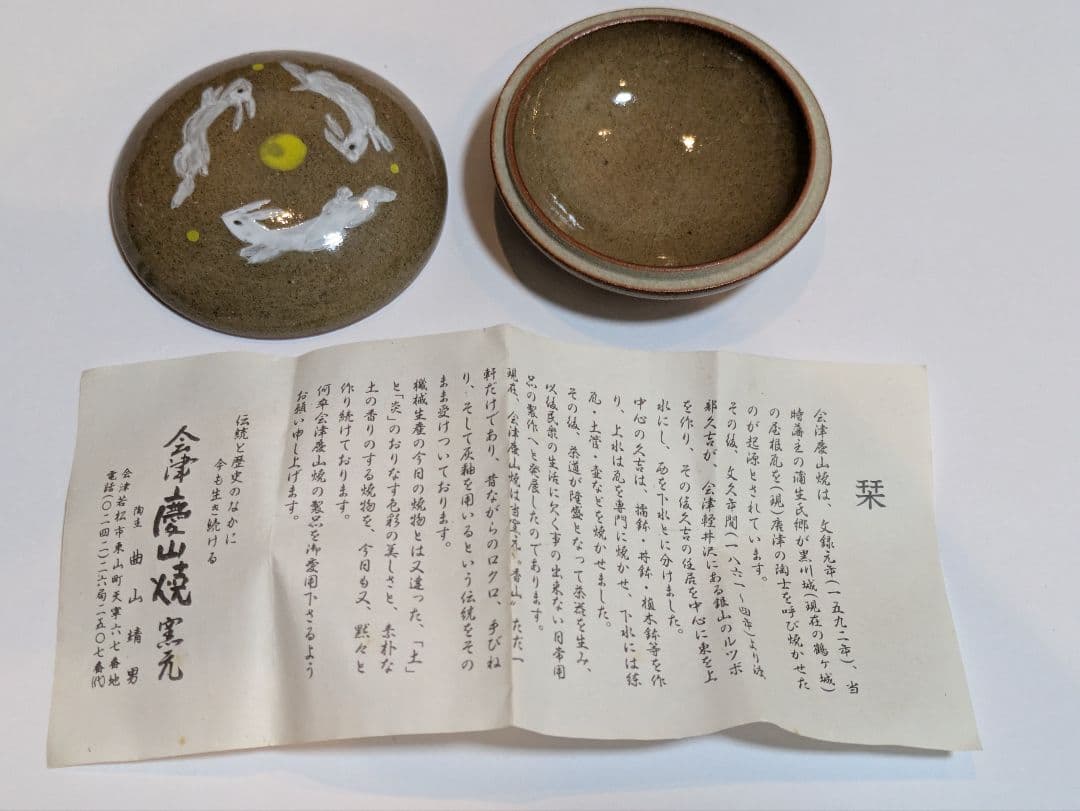 栞
会津慶山焼は、文録元年(一五九二年)、当
時藩主の蒲生氏郷が黒川城(現在の鶴ヶ城)
の屋根瓦を(現)唐津の陶士を呼び焼かせた
のが起源とされています。
その後、文久年間(一八六一〜四年)より
那久吉が、会津軽井沢にある銀山のルツボ
を作り、その後久吉の住居を中心に東を上
水にし、西を下水とに分けました。
中心の久吉は、擂鉢・丼鉢・植木鉢等を作
り、上水は瓦を専門に焼かせ、下水には練
瓦・土管・壷などを焼かせました。
その後、茶道が隆盛となって茶器を生み、
以後民衆の生活に欠く事の出来ない日常用
品の製作へと発展したのであります。
現在、会津慶山焼は当窯元〝香山〟ただ一
軒だけであり、昔ながらのロクロ、手びね
り、そして灰釉を用いるという伝統をその
まま受けついでおります。
機械生産の今日の焼物とは又違った、「土」
と「炎」のおりなす色彩の美しさと、素朴な
土の香りのする焼物を、今日も又、黙々と
作り続けております。
何卒会津慶山焼の製品を御愛用下さるよう
お願い申し上げます。
伝統と歴史のなかに
今も生き続ける
会津慶山焼窯元
陶主 曲山靖男
会津若松市東山町天寧六七番地
電話(〇二四二)二六局二五〇七番(代)